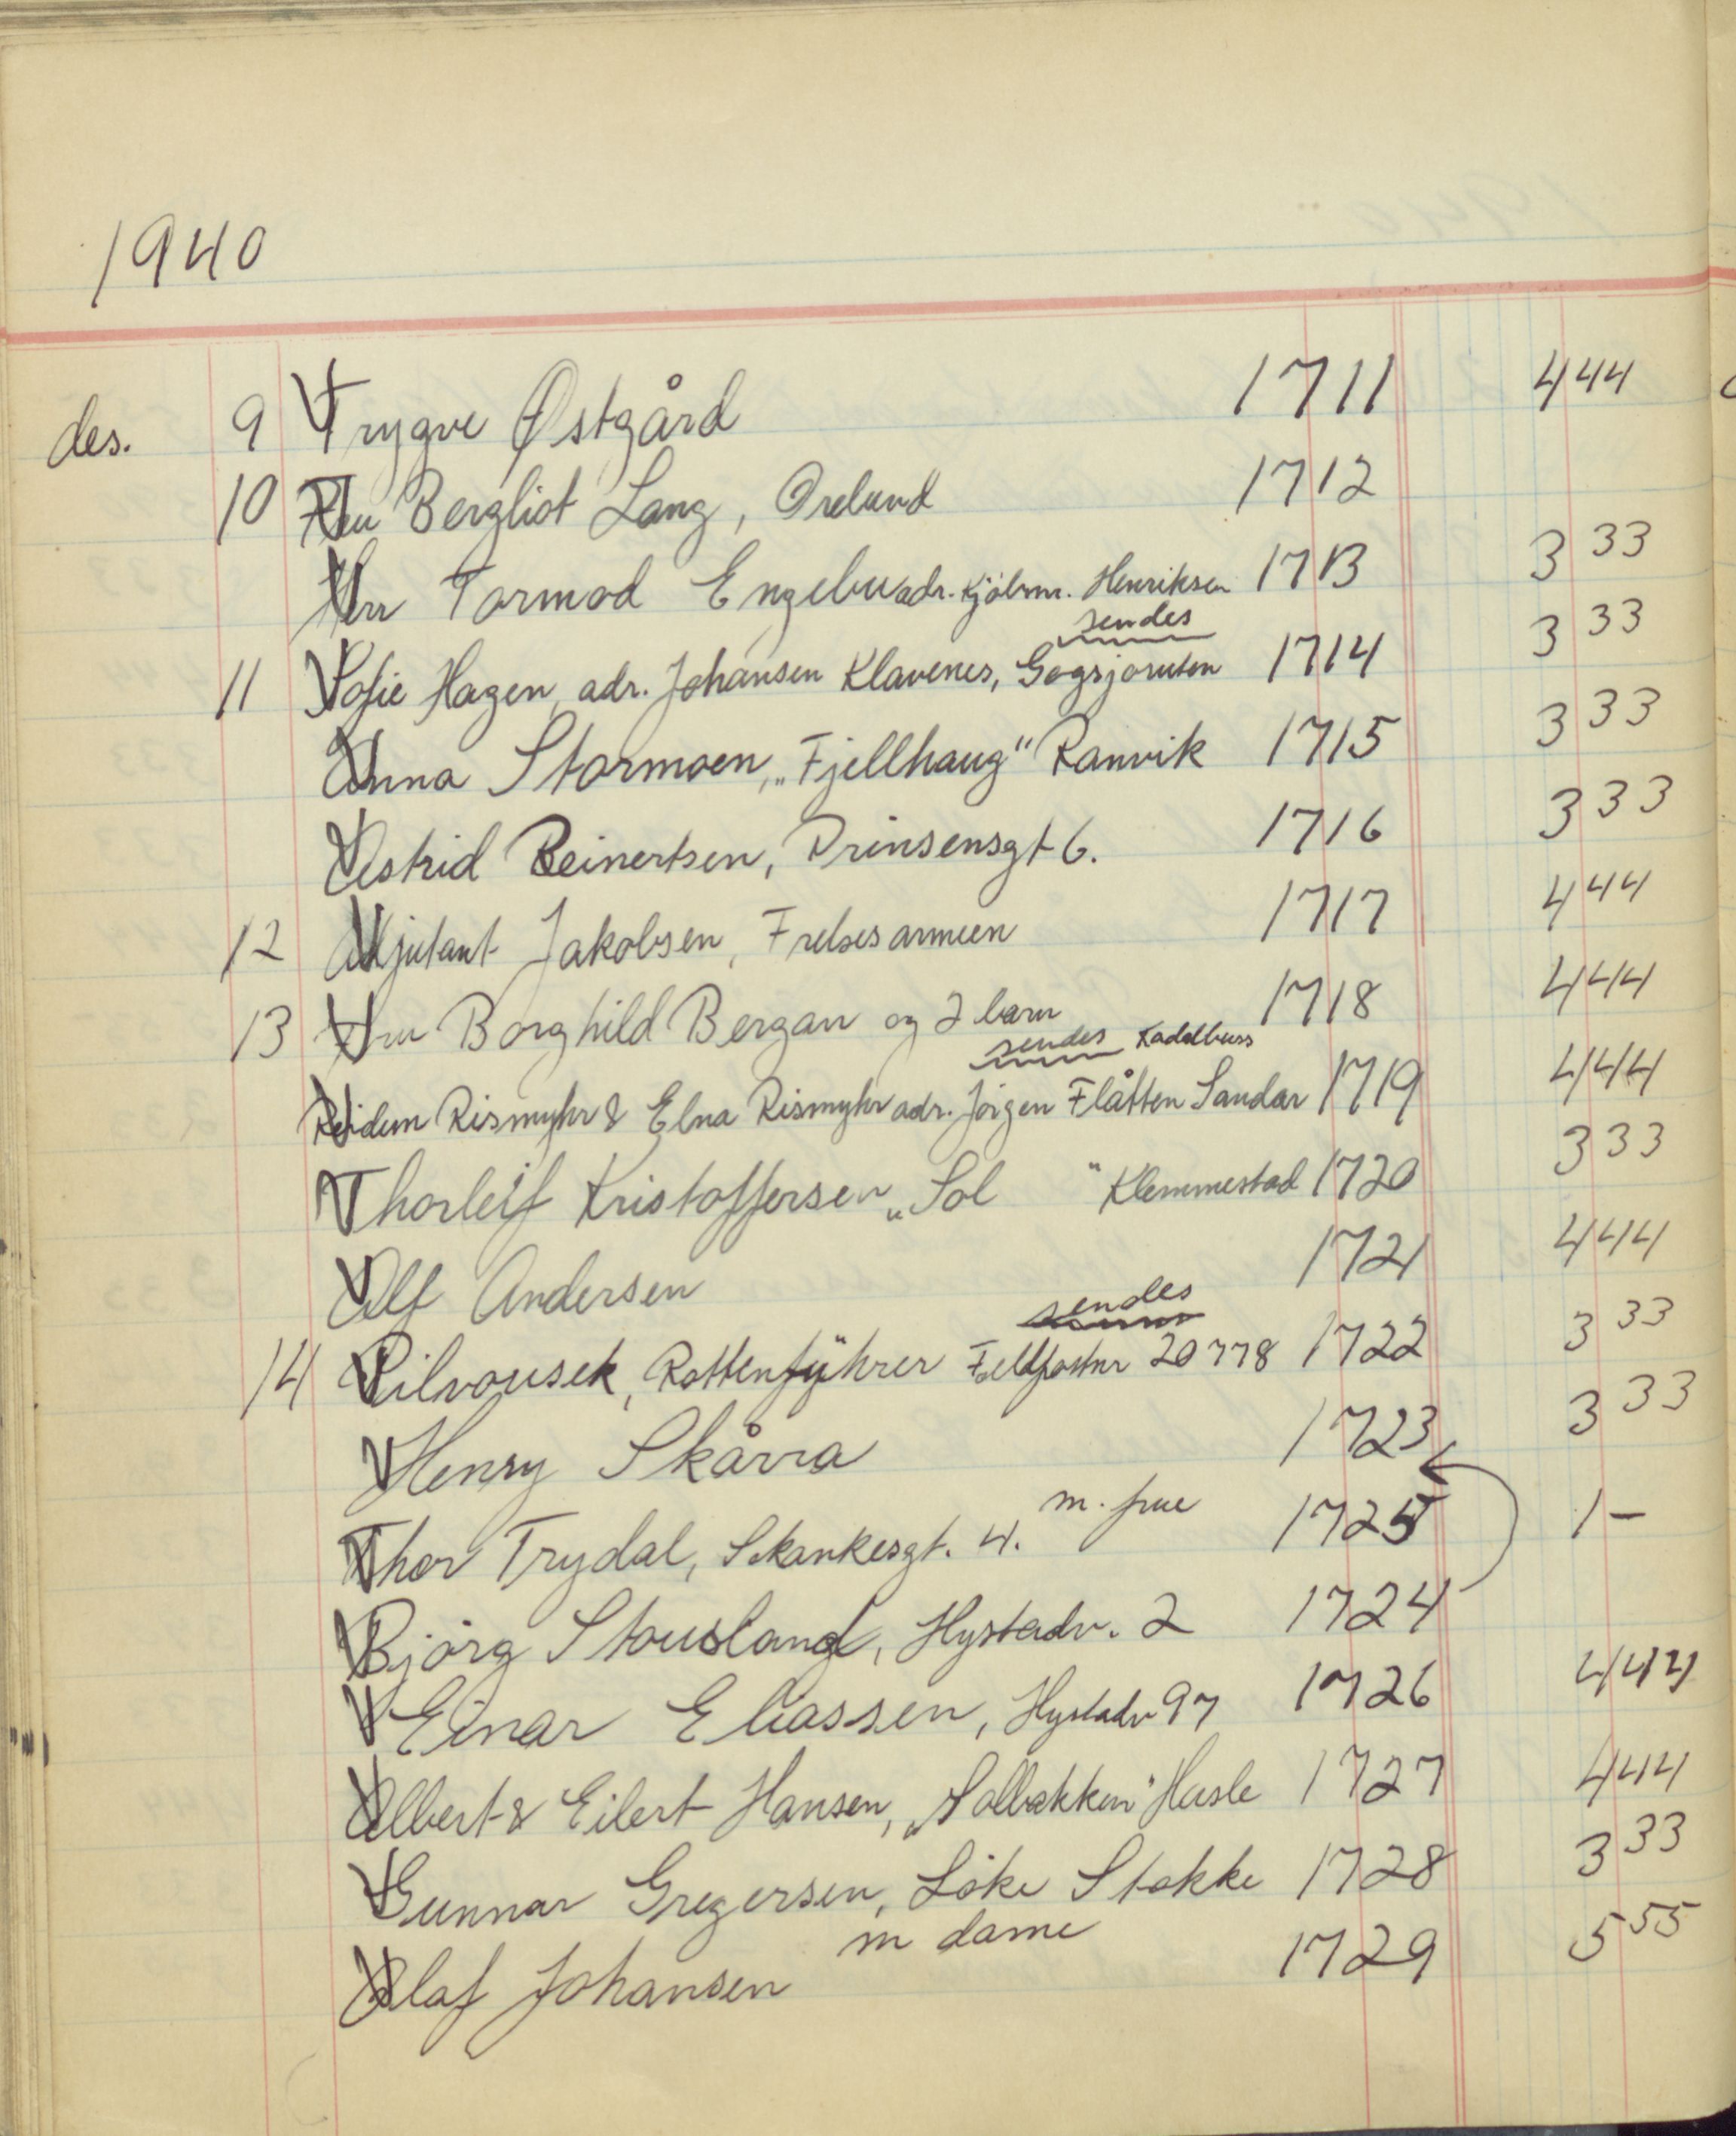 1940
des. 9 Trygve Østgård 1711 4 44
10 Fru Bergliot Lang, Orelund 1712
Herr Tormod Engebu adr. Kjölnr. Henriksen 1713 3 33
sendes
11 Sofie Hagen, adr. Johansen Klavenes, Gogsjøruten 1714 3 33
Anna Stormoen, „Fjellhaug" Ranvik 1715 3 33
Astrid Reinertsen, Prinsensgt 6. 1716 3 33
12 Adjutant Jakobsen, Frelsesarmeen 1717 4 44
13 Fru Borghild Bergan og 2 barn 1718 4 44
sendes Kadalbuss
Reidun Rismyhr & Elna Rismyhr adr. Jörgen Flåtten Sandar 1719 4 44
Thorleif Kristoffersen „Sol " Klemmestad 1720 3 33
Alf Andersen 1721 4 44
sendes
14 Pilvousek, Rottenführer Feldpostnr 20778 1722 3 33
Henry Skårra 1723 3 33
Thor Trydal, Skankesgt. 4. m. frue 1725 1 –
Björg Stousland, Hystadv. 2 1724
Einar Eliassen, Hystadv 97 1726 4 44
Albert & Eilert Hansen, „Solbakken" Hasle 1727 4 44
Gunnar Gregersen, Löke Stokke 1728 3 33
m dame
Olaf Johansen 1729 5 55